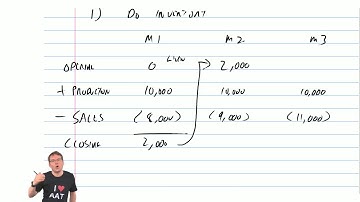 1) Do INVENTORY
M1 M2 M3
OPENING 0 2,000
+ PRODUCTION 10,000 10,000 10,000
- SALES (8,000) (9,000) (11,000)
CLOSING 2,000
I ♥
AAT